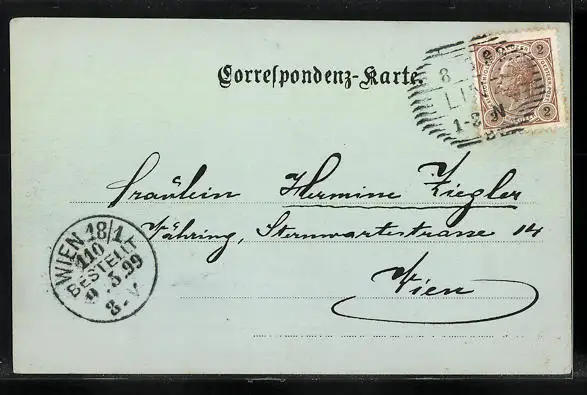 Correspondenz-Karte
8
LIN
1-2 N
2 2
2 2
Fräulein Hermine Ziegler
Währing, Sternwartestrasse 14
Wien
WIEN 18/1
110
BESTELLT
9.5.99
8-V